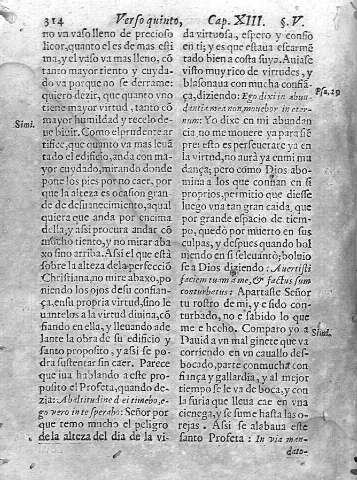 314 Verso quinto, Cap. XIII. §. V.
no va vaso lleno de precioso
licor, quanto el es de mas esti
ma, y el vaso va mas lleno, cō
tanto mayor tiento y cuyda-
do va porque no se derrame:
quiero dezir, que quanto vno
tiene mayor virtud, tanto cō
mayor humildad y recelo de-
ue biuir. Como el prudente ar
tifice, que quanto va mas leuā
tado el edificio, anda con ma-
yor cuydado, mirando donde
pone los pies por no caer, por
que la alteza es ocasion gran-
de de desuanecimiento, aqual
quiera que anda por encima
della, y assi procura andar cō
mucho tiento, y no mirar aba
xo sino arriba. Assi el que està
sobre la alteza de la perfecciō
Christiana, no mire abaxo, po
niendo los ojos de su confian-
ça, en su propria virtud, sino le
uantelos a la virtud diuina, cō
fiando en ella, y lleuando ade
lante la obra de su edificio y
santo proposito, y assi se po-
dra sustentar sin caer. Parece
que iua hablando a este pro-
posito el Profeta, quando de-
zia: Ab altitudine diei timebo, e-
go vero in te sperabo: Señor por
que temo mucho el peligro
de la alteza del dia de la vi-
Simi.
da virtuosa, espero y confio
en ti; y es que estaua escarmē
tado bien a costa suya. Auiase
visto muy rico de virtudes, y
blasonaua con mucha confiā-
ça, diziendo: Ego dixi in abun
dantia mea non mouebor in eter-
num: Yo dixe en mi abundan
cia, no me mouere ya para siē
pre: esto es perseuerare ya en
la virtud, no aurà ya en mi mu
dança; pero como Dios abo-
mina a los que confian en si
proprios, permitio que diesse
luego vna tan gran caida, que
por grande espacio de tiem-
po, quedò por muerto en sus
culpas, y despues quando bol
uiendo en si se leuantò; boluio
se a Dios diziendo: Auertisti
faciem tuam à me, & factus sum
conturbatus: Apartaste Señor
tu rostro de mi, y e sido con-
turbado, no e sabido lo que
me e hecho. Comparo yo a
Dauid a vn mal ginete que va
corriendo en vn cauallo des-
bocado, parte con mucha con
fiança y gallardia, y al mejor
tiempo se le va de boca, y con
la furia que lleua cae en vna
cienega, y se sume hasta las o-
rejas. Assi se alabaua este
santo Profeta: In via man-
dato-
Psa. 29
Simil.